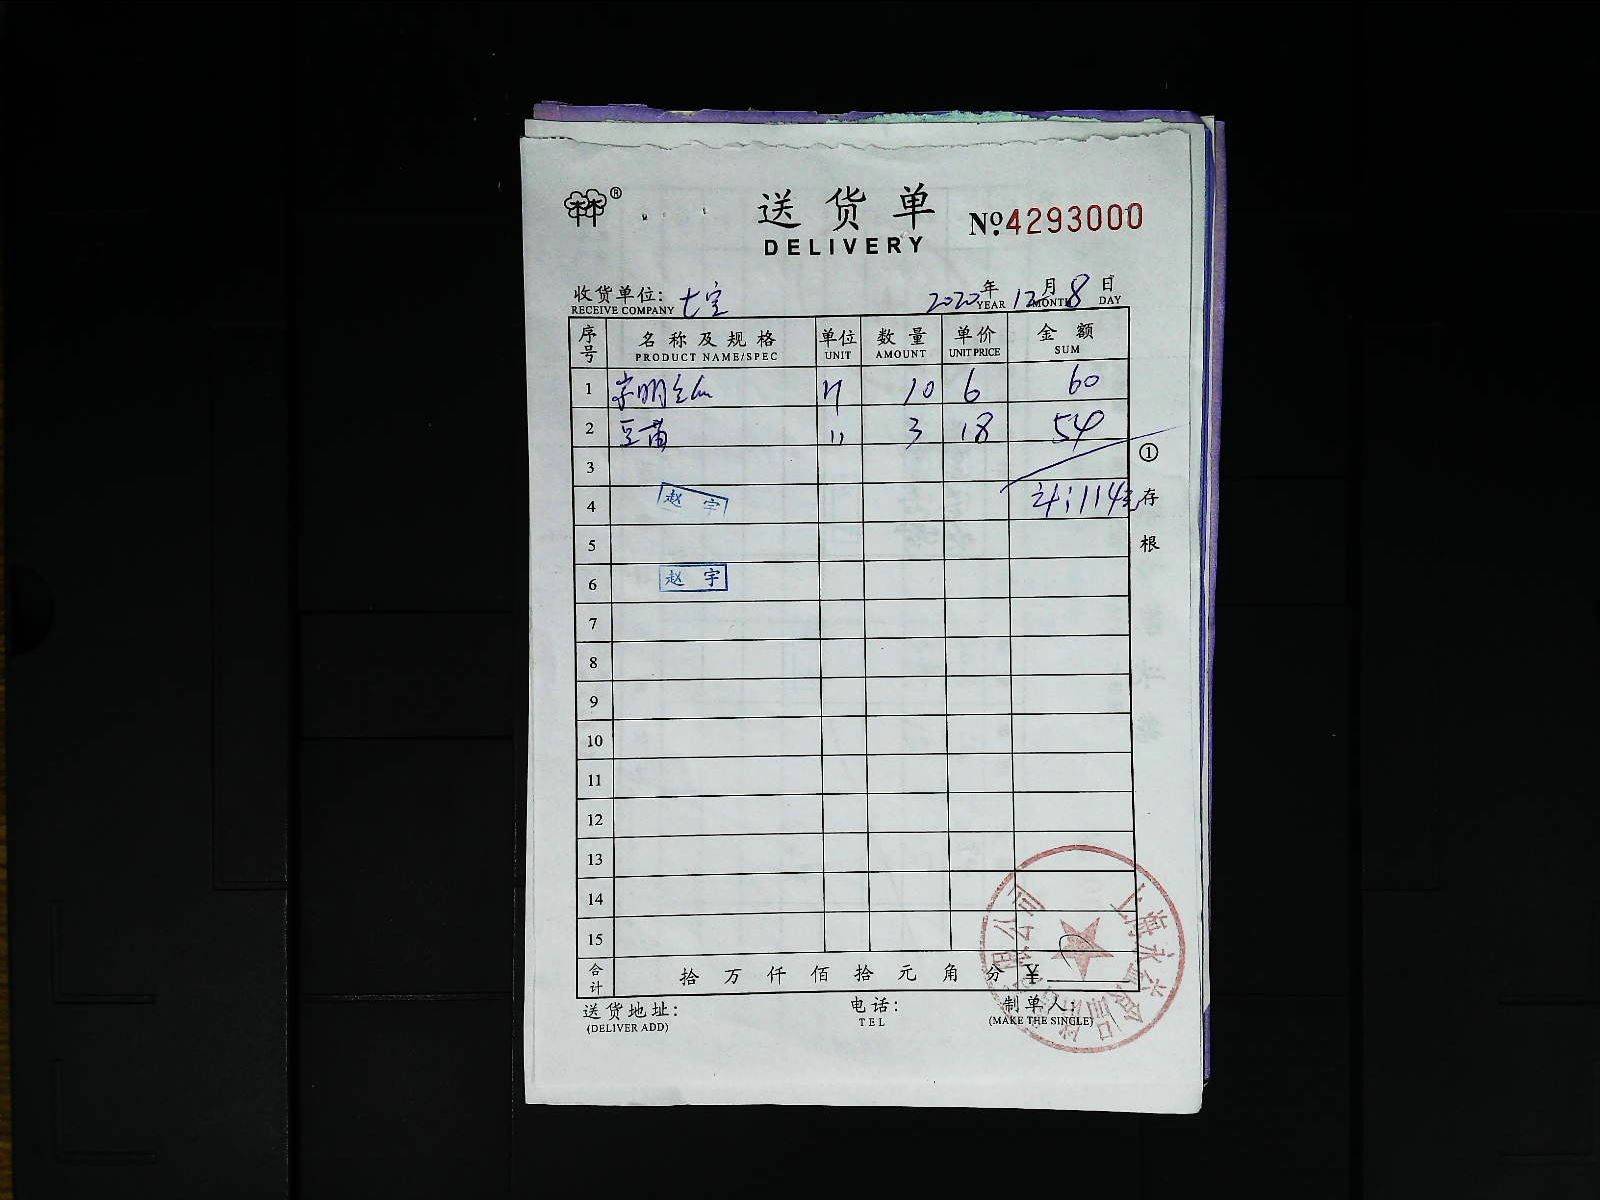 ® 送货单 No.4293000
DELIVERY
收货单位: 七宝 2020年 12月 8日
RECEIVE COMPANY YEAR MONTH DAY
序号 名称及规格 单位 数量 单价 金额
PRODUCT NAME/SPEC UNIT AMOUNT UNIT PRICE SUM
1 10 6 60
2 豆苗 〃 3 18 54
3
4 赵宇 计:114元
5
6 赵宇
7
8
9
10
11
12
13
14
15
合计 拾万仟佰拾元角分 ¥
①存根
送货地址: 电话: 制单人:
(DELIVER ADD) TEL (MAKE THE SINGLE)